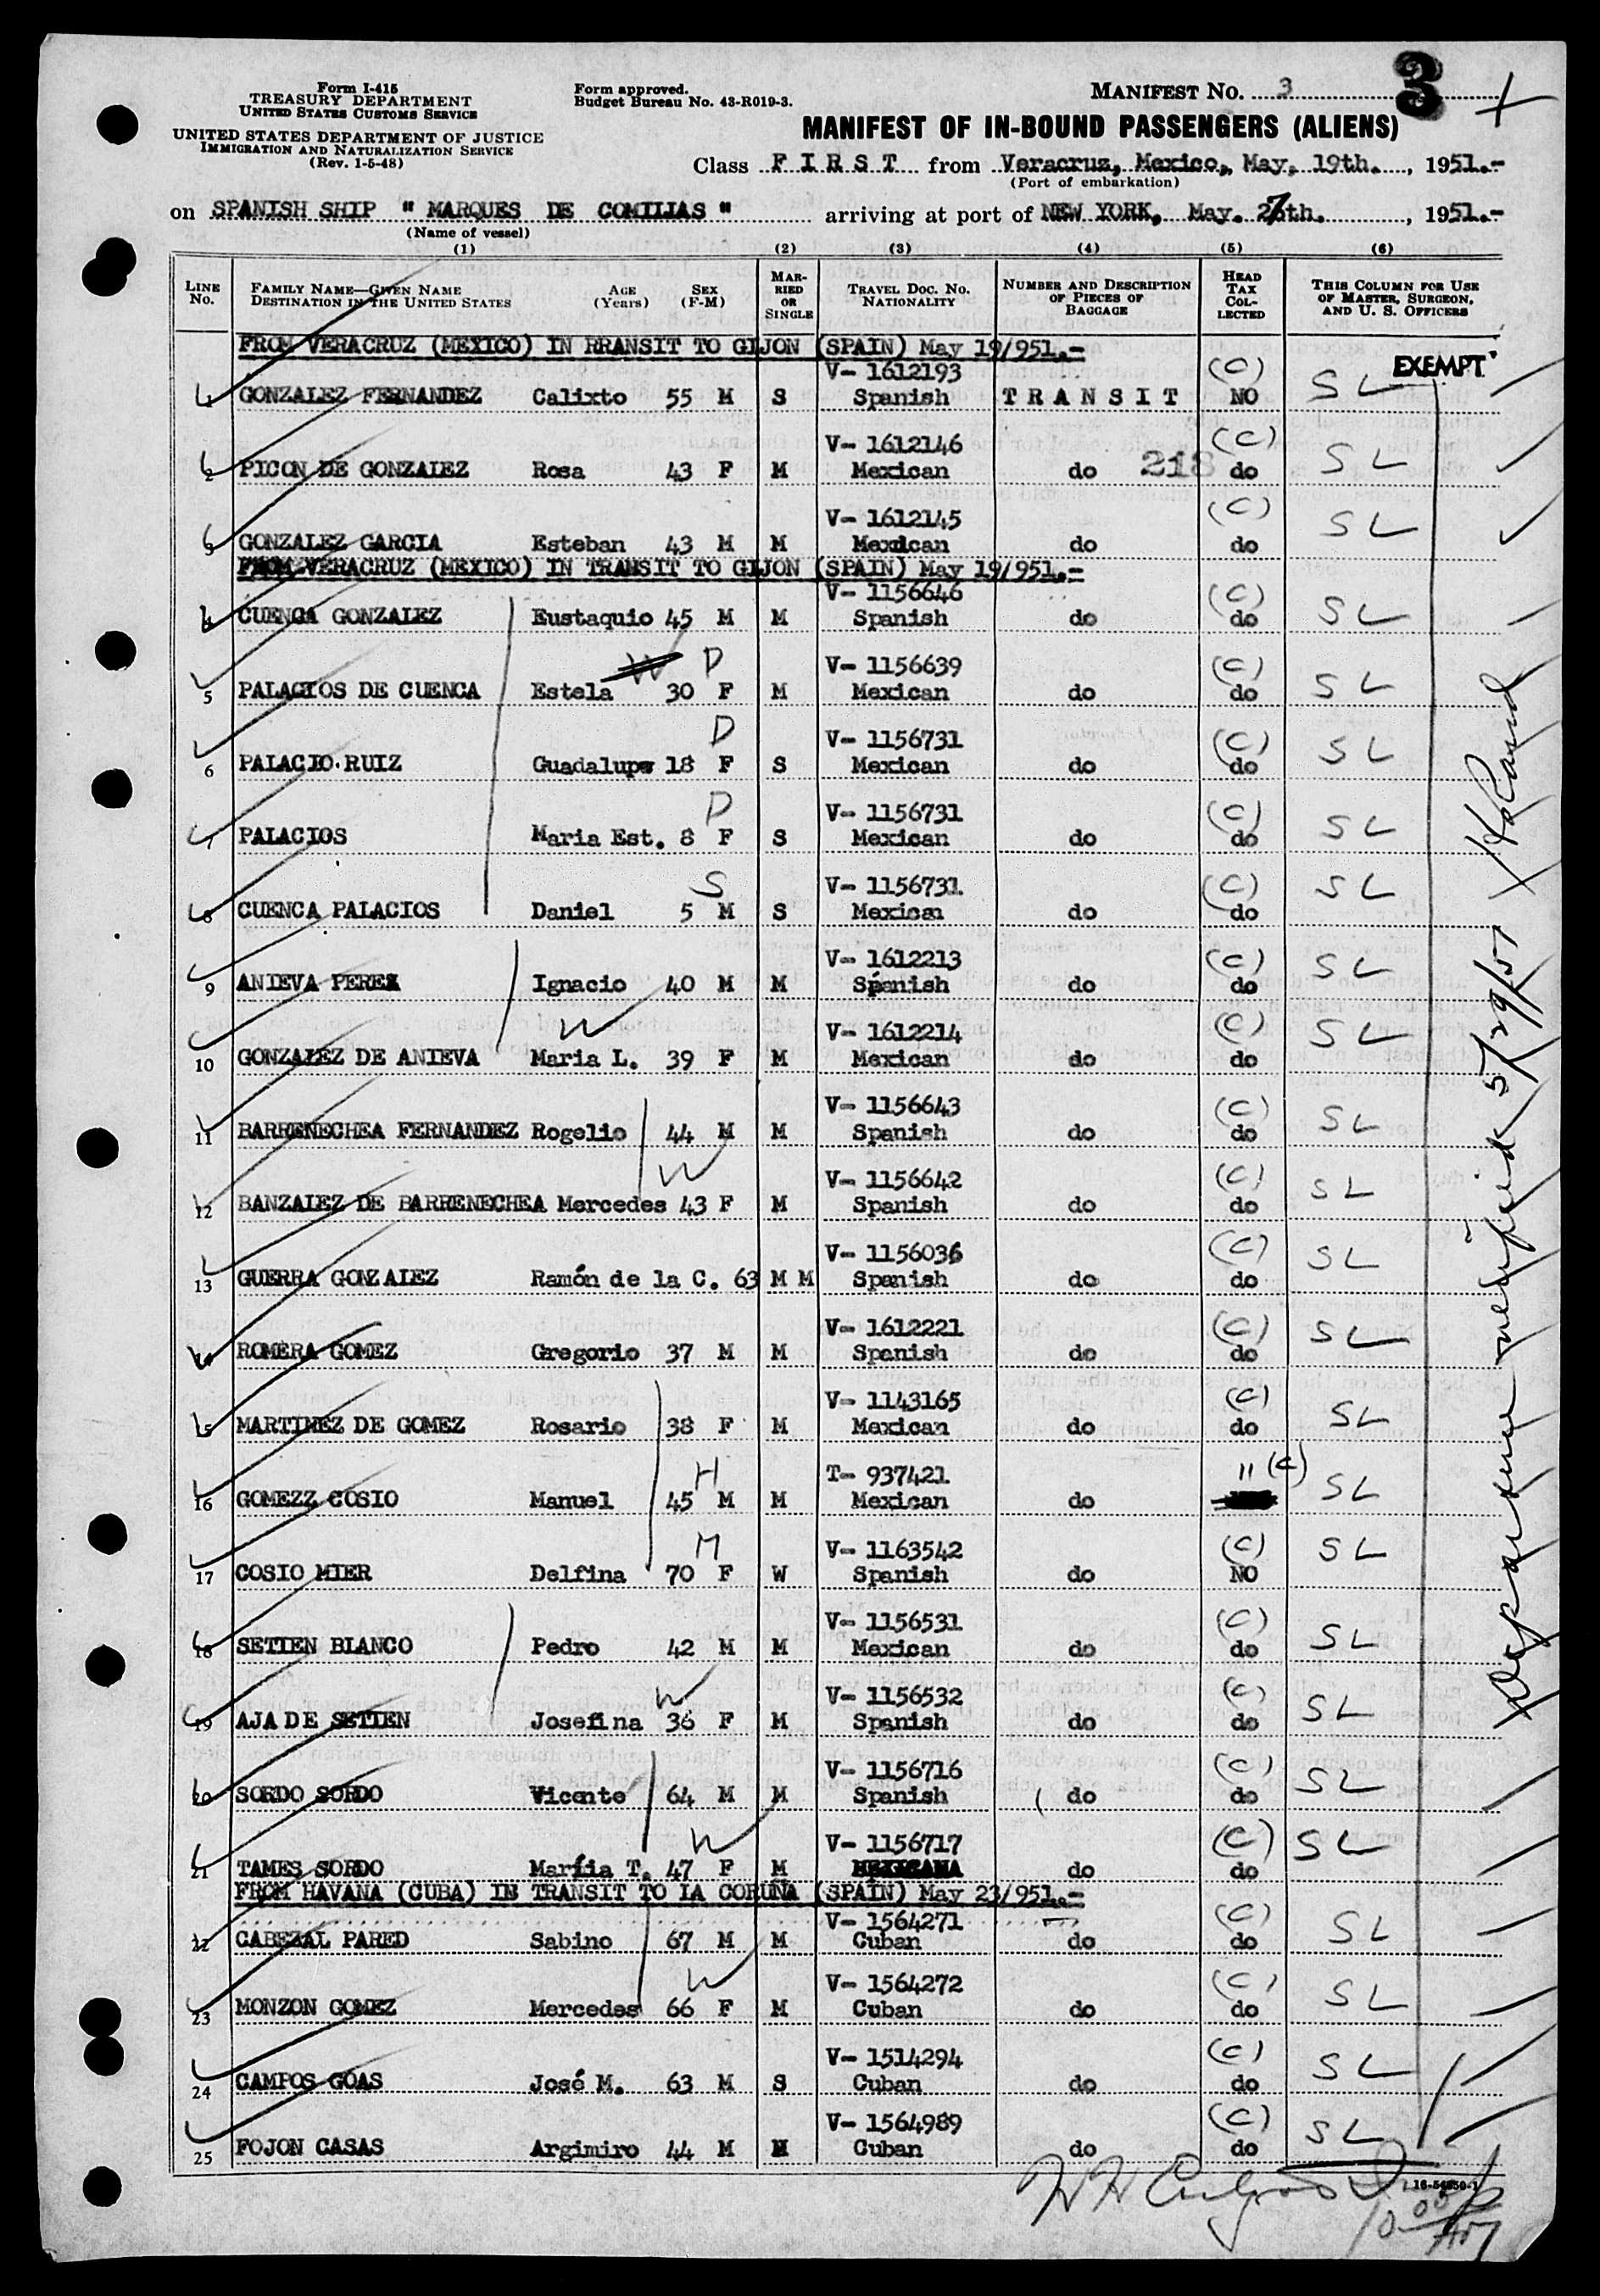 Form I-415
TREASURY DEPARTMENT
UNITED STATES CUSTOMS SERVICE
UNITED STATES DEPARTMENT OF JUSTICE
IMMIGRATION AND NATURALIZATION SERVICE
(Rev. 1-5-48)
Form approved.
Budget Bureau No. 43-R019-3.
MANIFEST NO. 3
3
MANIFEST OF IN-BOUND PASSENGERS (ALIENS)
Class F I R S T from Veracruz, Mexico, May, 19th. , 1951.-
(Port of embarkation)
on SPANISH SHIP " MARQUES DE COMILIAS " arriving at port of NEW YORK, May. 27th. , 1951.-
(Name of vessel)
(1) (2) (3) (4) (5) (6)
LINE NO. FAMILY NAME—GIVEN NAME DESTINATION IN THE UNITED STATES AGE (Years) SEX (F-M) MARRIED OR SINGLE TRAVEL DOC. NO. NATIONALITY NUMBER AND DESCRIPTION OF PIECES OF BAGGAGE HEAD TAX COLLECTED THIS COLUMN FOR USE OF MASTER, SURGEON, AND U. S. OFFICERS
FROM VERACRUZ (MEXICO) IN RRANSIT TO GIJON (SPAIN) May 19/951.-
EXEMPT
V- 1612193 (C)
1 GONZALEZ FERNANDEZ Calixto 55 M S Spanish T R A N S I T NO S L
V- 1612146 (C)
2 PICON DE GONZALEZ Rosa 43 F M Mexican do 218 do S L
V- 1612145 (C)
3 GONZALEZ GARCIA Esteban 43 M M Mexican do do S L
FROM VERACRUZ (MEXICO) IN TRANSIT TO GIJON (SPAIN) May 19/951.-
V- 1156646 (C)
4 CUENCA GONZALEZ Eustaquio 45 M M Spanish do do S L
W D V- 1156639 (C)
5 PALACIOS DE CUENCA Estela 30 F M Mexican do do S L
D V- 1156731 (C)
6 PALACIO.RUIZ Guadalupe 18 F S Mexican do do S L
D V- 1156731 (C)
7 PALACIOS Maria Est. 8 F S Mexican do do S L
S V- 1156731 (C)
8 CUENCA PALACIOS Daniel 5 M S Mexican do do S L
V- 1612213 (C)
9 ANIEVA PEREZ Ignacio 40 M M Spanish do do S L
W V- 1612214 (C)
10 GONZALEZ DE ANIEVA Maria L. 39 F M Mexican do do S L
V- 1156643 (C)
11 BARRENECHEA FERNANDEZ Rogelio 44 M M Spanish do do S L
W V- 1156642 (C)
12 BANZALEZ DE BARRENECHEA Mercedes 43 F M Spanish do do S L
V- 1156036 (C)
13 GUERRA GONZALEZ Ramón de la C. 63 M M Spanish do do S L
V- 1612221 (C)
14 ROMERA GOMEZ Gregorio 37 M M Spanish do do S L
V- 1143165 (C)
15 MARTINEZ DE GOMEZ Rosario 38 F M Mexican do do S L
H T- 937421 " (C)
16 GOMEZZ COSIO Manuel 45 M M Mexican do S L
M V- 1163542 (C)
17 COSIO MIER Delfina 70 F W Spanish do NO S L
V- 1156531 (C)
18 SETIEN BLANCO Pedro 42 M M Mexican do do S L
W V- 1156532 (C)
19 AJA DE SETIEN Josefina 36 F M Spanish do do S L
V- 1156716 (C)
20 SORDO SORDO Vicente 64 M M Spanish do do S L
W V- 1156717 (C)
21 TAMES SORDO Maríia T. 47 F M MEXICANA do do S L
FROM HAVANA (CUBA) IN TRANSIT TO LA CORUÑA (SPAIN) May 23/951.-
V- 1564271 (C)
22 CABEZAL PARED Sabino 67 M M Cuban do do S L
W V- 1564272 (C)
23 MONZON GOMEZ Mercedes 66 F M Cuban do do S L
V- 1514294 (C)
24 CAMPOS GOAS José M. 63 M S Cuban do do S L
V- 1564989 (C)
25 FOJON CASAS Argimiro 44 M M Cuban do do S L
Departure verified 5/29/51
16-54850-1
10